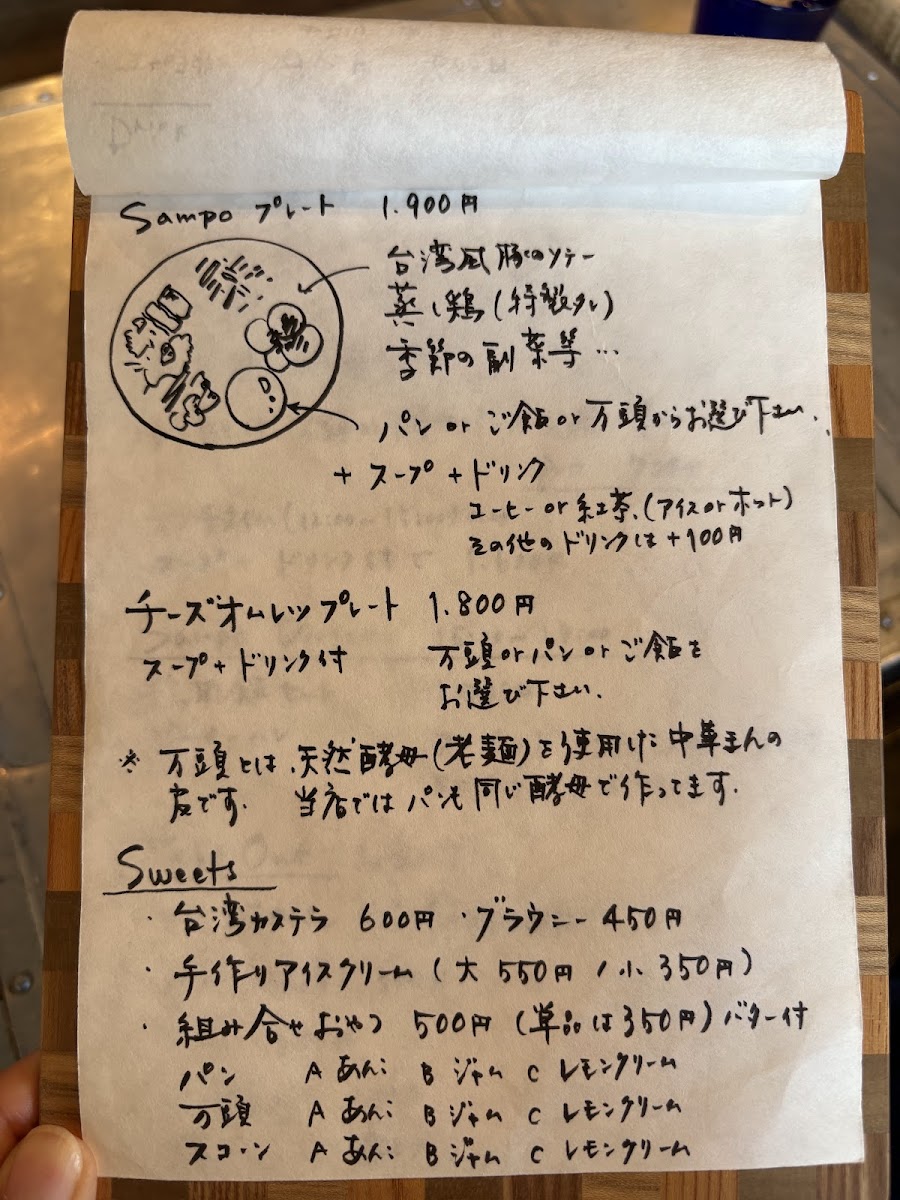 Sampo プレート 1.900円
台湾風豚のソテー
蒸し鶏(特製タレ)
季節の副菜等…
パン or ご飯 or 万頭からお選び下さい.
+ スープ + ドリンク
コーヒー or 紅茶.(アイス or ホット)
その他のドリンクは+100円
チーズオムレツプレート 1.800円
スープ+ドリンク付 万頭 or パン or ご飯を
お選び下さい.
※ 万頭とは、天然酵母(老麺)を使用した中華まんの
皮です. 当店ではパンも同じ酵母で作ってます.
Sweets
・台湾カステラ 600円 ・ブラウニー 450円
・手作りアイスクリーム(大 550円 / 小 350円)
・組み合せおやつ 500円(単品は350円)バター付
パン A あんこ B ジャム C レモンクリーム
万頭 A あんこ B ジャム C レモンクリーム
スコーン A あんこ B ジャム C レモンクリーム